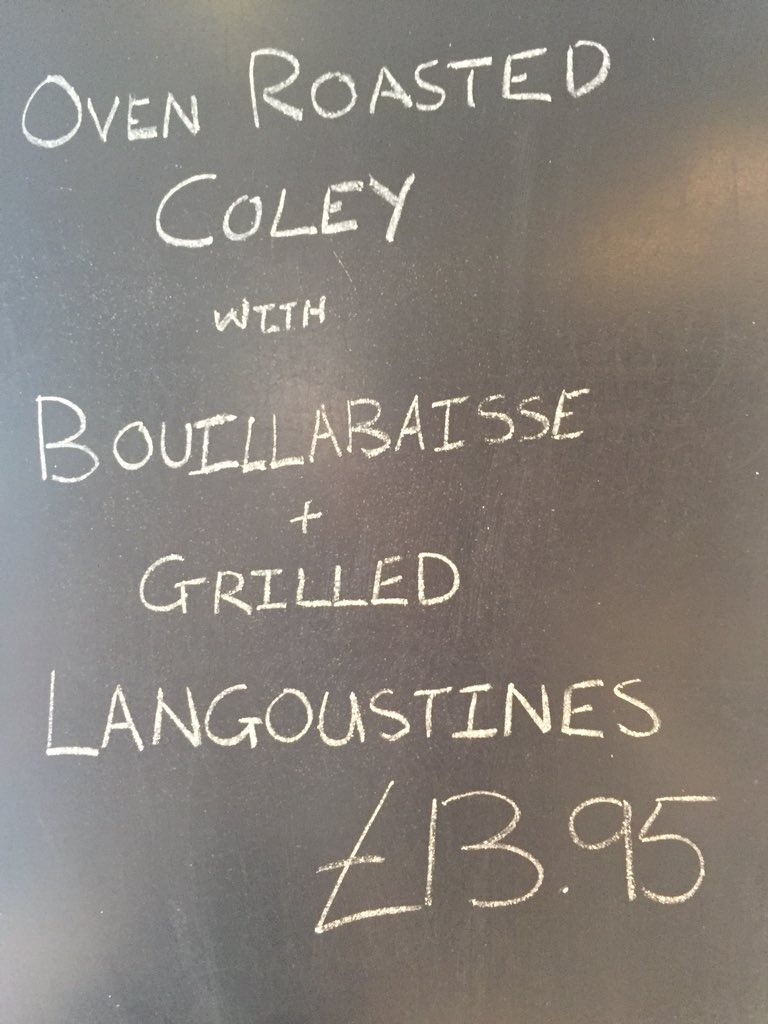 OVEN ROASTED
COLEY
WITH
BOUILLABAISSE
+
GRILLED
LANGOUSTINES
£13.95